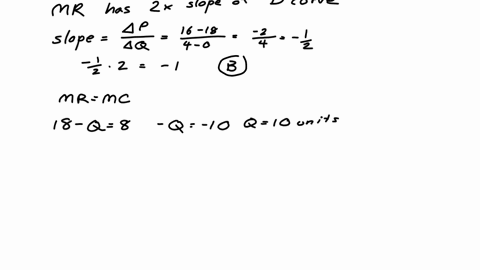 MR has 2x slope of D curve
slope = ΔP/ΔQ = 16-18/4-0 = -2/4 = -1/2
-1/2 · 2 = -1 (B)
MR = MC
18-Q=8 -Q=-10 Q=10 units